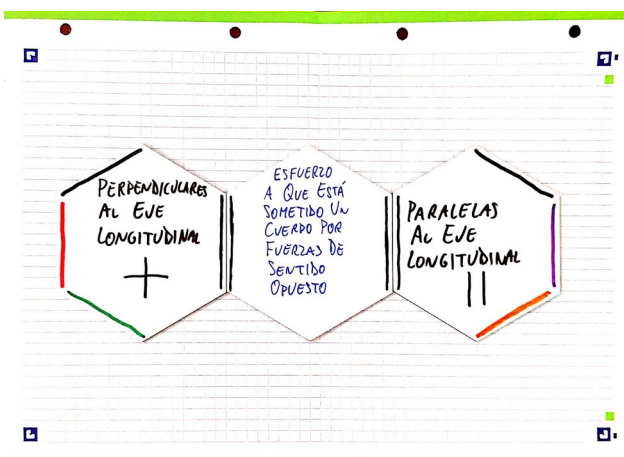 PERPENDICULARES
AL EJE
LONGITUDINAL
ESFUERZO
A QUE ESTÁ
SOMETIDO UN
CUERPO POR
FUERZAS DE
SENTIDO
OPUESTO
PARALELAS
AL EJE
LONGITUDINAL